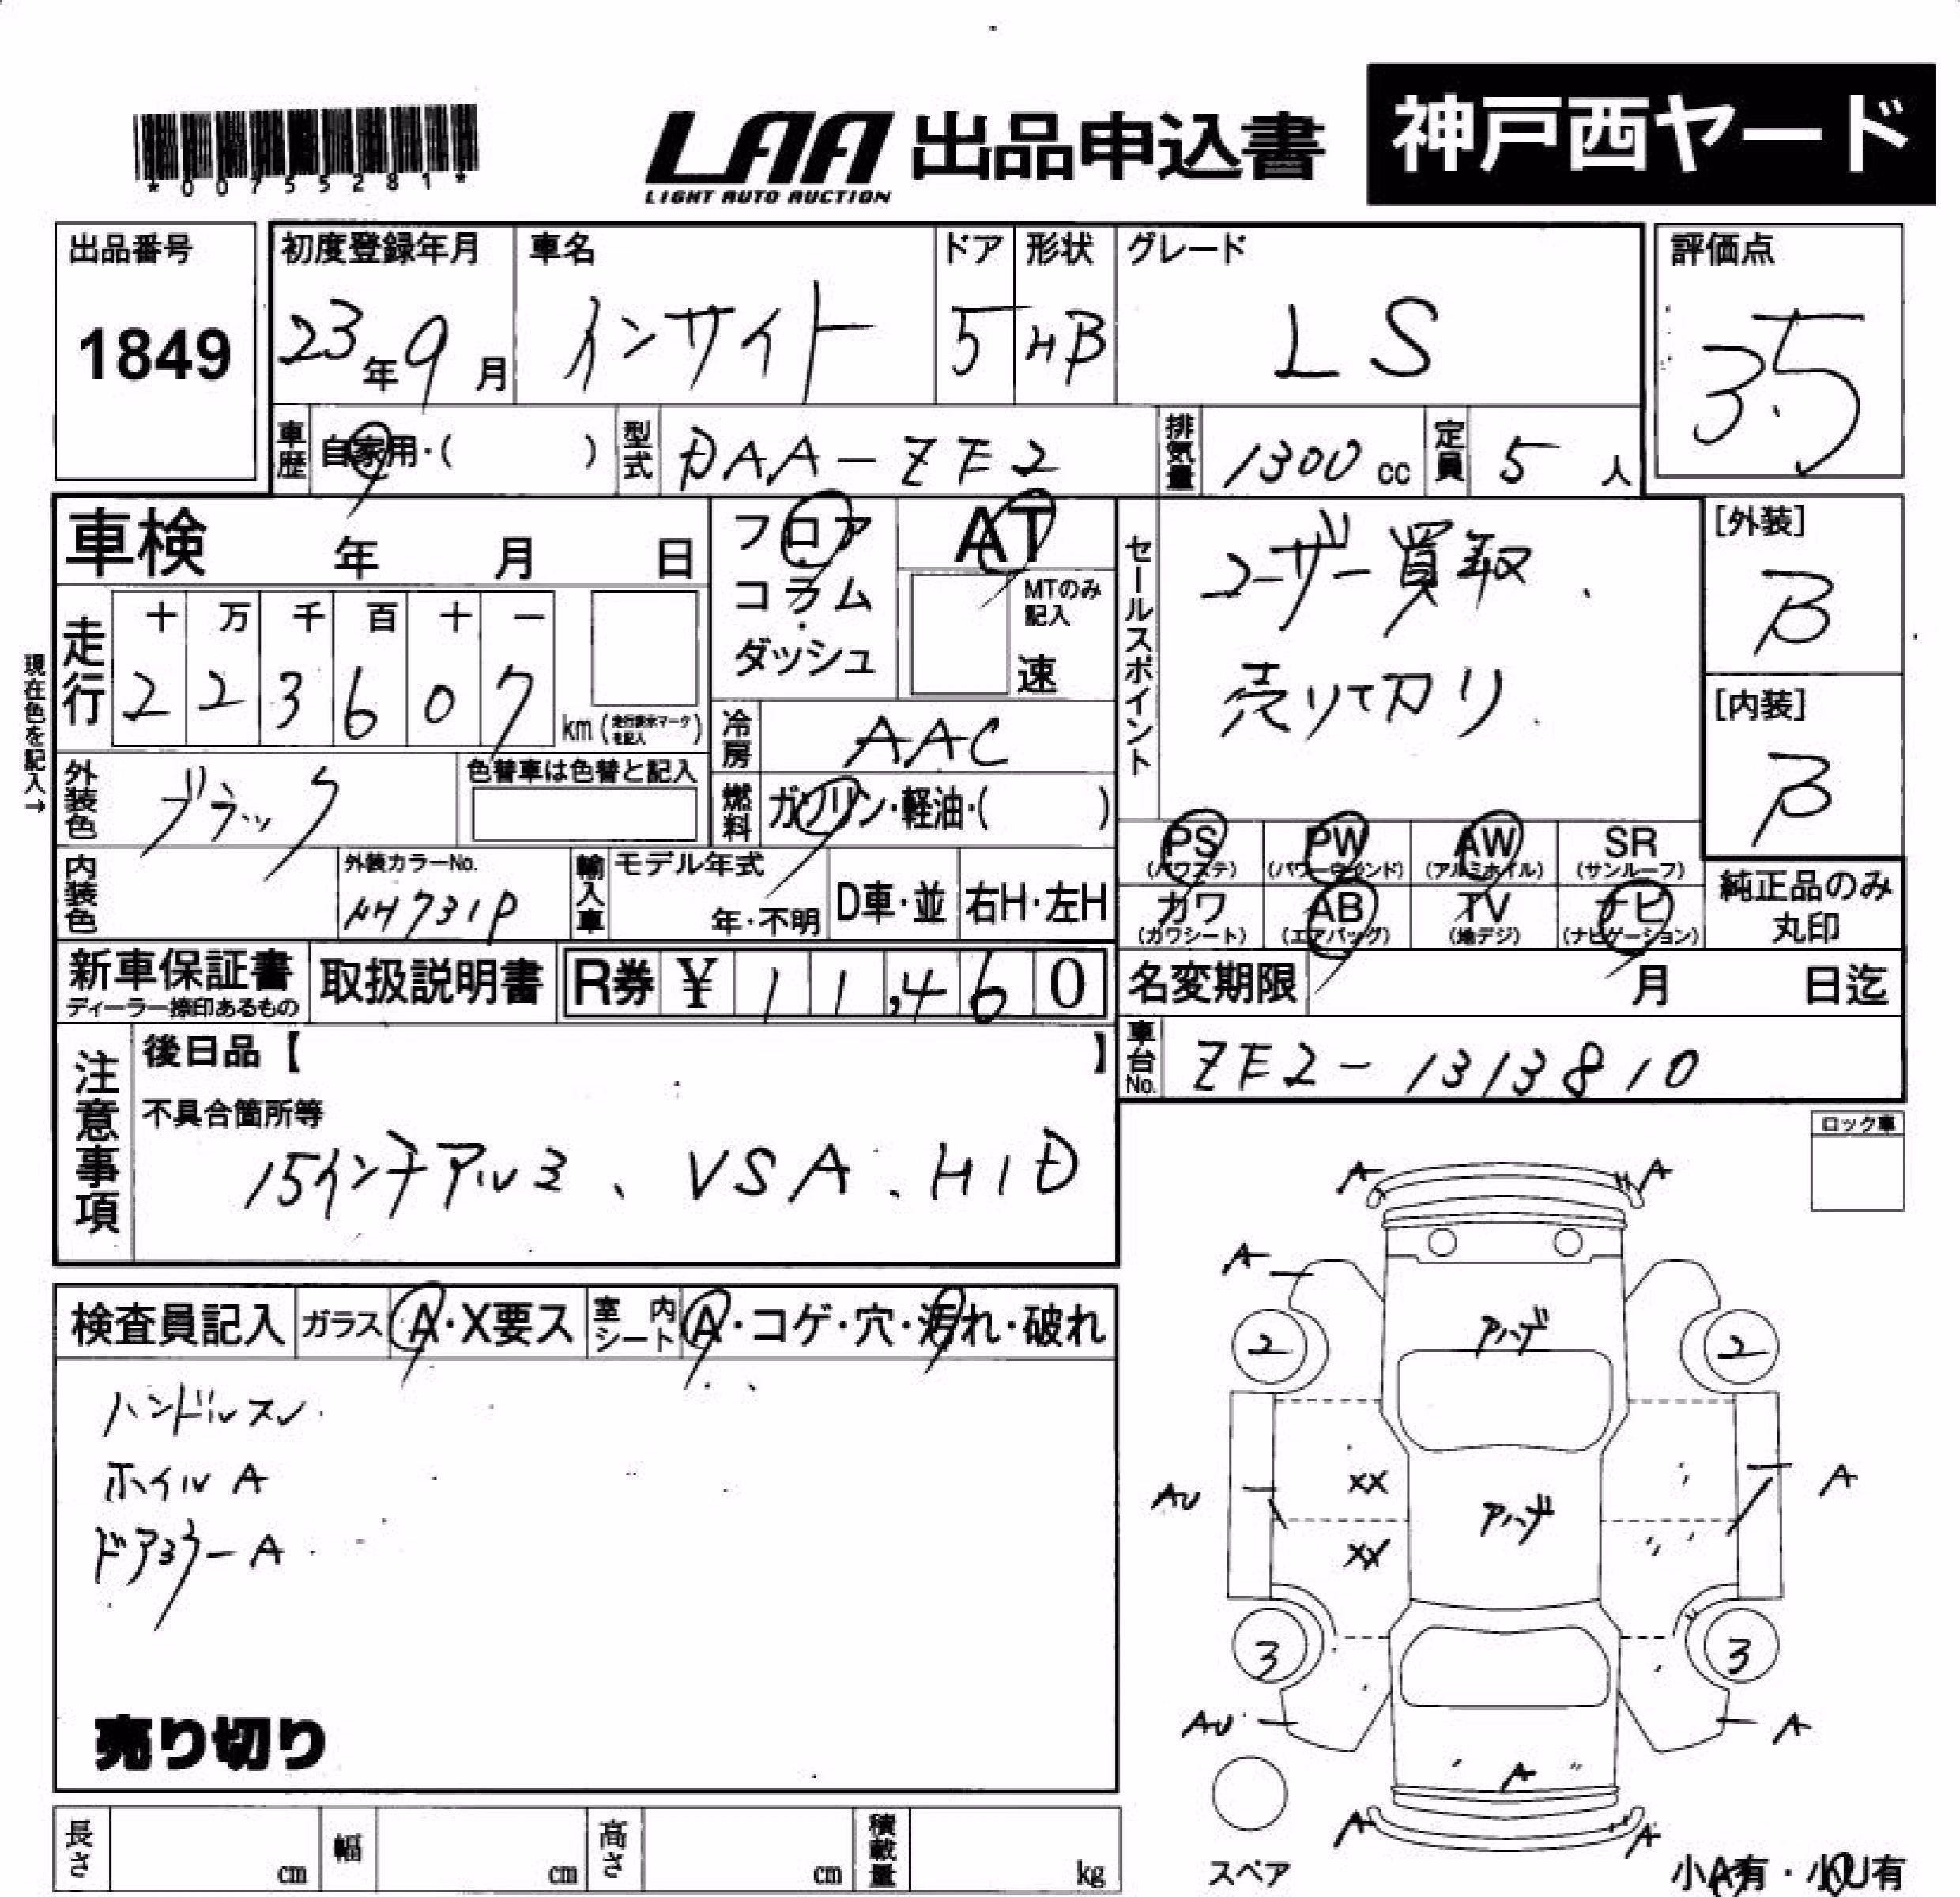 *00755281*
LAA 出品申込書 神戸西ヤード
LIGHT AUTO AUCTION
出品番号 1849
初度登録年月 23年9月
車名 インサイト
ドア 5
形状 HB
グレード LS
評価点 3.5
車歴 自家用・( )
型式 DAA-ZE2
排気量 1300 cc
定員 5 人
車検 年 月 日
フロア
コラム
ダッシュ
AT
MTのみ
記入
速
セールスポイント
ユーザー買取.
売りて刀り.
[外装] B
[内装] B
現在色を記入→
走行 十 万 千 百 十 一
2 2 3 6 0 7 km (走行表示マークを記入)
冷房 AAC
外装色 ブラック
色替車は色替と記入
燃料 ガソリン・軽油・( )
PS (パワステ)
PW (パワーウィンド)
AW (アルミホイル)
SR (サンルーフ)
カワ (カワシート)
AB (エアバッグ)
TV (地デジ)
ナビ (ナビゲーション)
純正品のみ
丸印
内装色
外装カラーNo. NH731P
輸入車 モデル年式 年・不明
D車・並 右H・左H
新車保証書
ディーラー捺印あるもの
取扱説明書
R券 ¥ 11,460
名変期限 月 日迄
車台No. ZE2-1313810
注意事項
後日品【 】
不具合箇所等
15インチアルミ、VSA、HID
ロック車
検査員記入 ガラス A・X要ス 室内シート A・コゲ・穴・汚れ・破れ
ハンドルスレ
ホイルA
ドアミラーA
売り切り
A A
A
アハゲ
2 2
XX
AU アハゲ A
XX
3 3
AU A
A
A A
スペア
小A有・小U有
長さ cm 幅 cm 高さ cm 積載量 kg